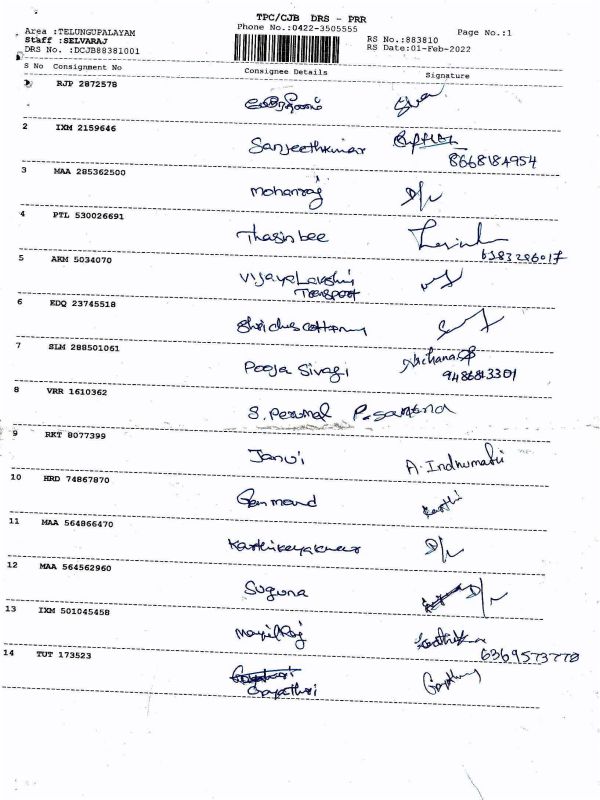 TPC/CJB DRS - PRR
Phone No.:0422-3505555
Page No.:1
Area :TELUNGUPALAYAM
Staff :SELVARAJ
DRS No. :DCJB88381001
RS No.:883810
RS Date:01-Feb-2022
S No Consignment No Consignee Details Signature
RJP 2872578
2 IXM 2159646 Sanjeethkumar
8668184954
3 MAA 285362500 mohanraj D/L
4 PTL 530026691 Thasin bee
6383286017
5 AKM 5034070 Vijayalakshmi
Transport
6 EDQ 23745518
7 SLM 288501061 Pooja Sivagi Archana
9486843301
8 VRR 1610362 S. Perumal P. Samena
9 RKT 8077399 Janvi A. Indhumathi
10 HRD 74867870 Karthi
11 MAA 564866470 Karthikeyakumar D/L
12 MAA 564562960 Suguna D/L
13 IXM 501045458 mayilraj
6369573770
14 TUT 173523
Gayathri Gayathri